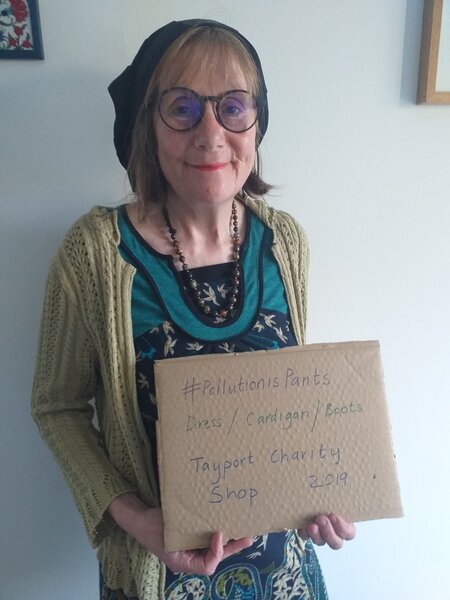 #PollutionisPants
Dress / Cardigan / Boots
Tayport Charity
Shop 2019